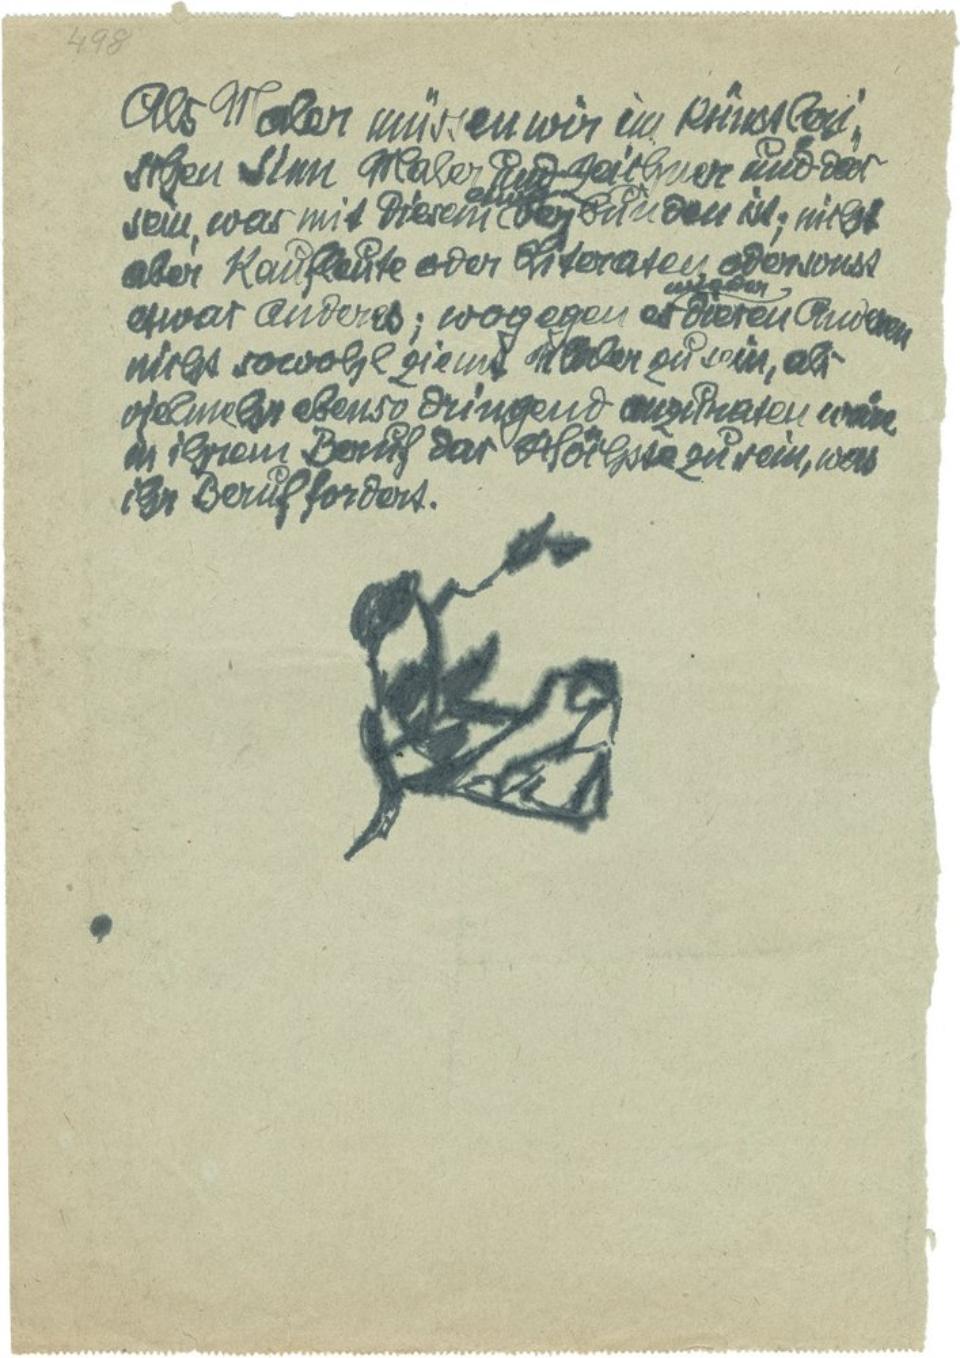 498
Als Maler müssen wir im künstleri-
schen Sinn Maler und Zeichner und das
sein, was mit diesem verbunden ist; nicht
aber Kaufleute oder Literaten oder sonst
etwas Anderes; wogegen es diesen Anderen
wieder
nicht sowohl ziemt Maler zu sein, als
vielmehr ebenso dringend anzuraten wäre
in ihrem Beruf das Höchste zu sein, was
ihr Beruf fordert.